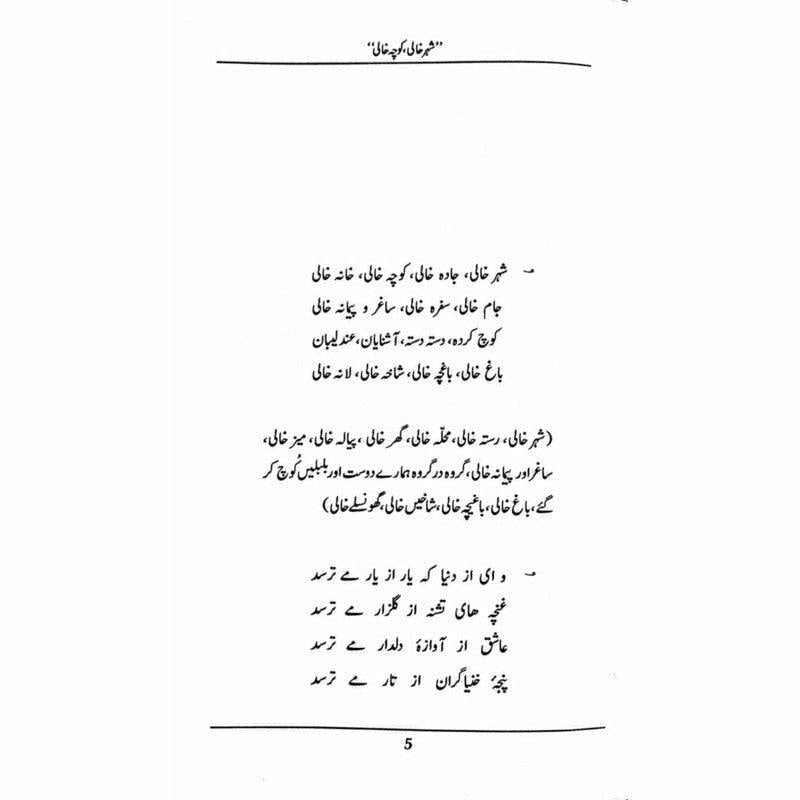 ”شہر خالی، کوچہ خالی“
؎ شہر خالی، جادہ خالی، کوچہ خالی، خانہ خالی
جام خالی، سفرہ خالی، ساغر و پیمانہ خالی
کوچ کردہ، دستہ دستہ، آشنایان، عندلیبان
باغ خالی، باغچہ خالی، شاخہ خالی، لانہ خالی
(شہر خالی، رستہ خالی، محلّہ خالی، گھر خالی، پیالہ خالی، میز خالی،
ساغر اور پیمانہ خالی، گروہ در گروہ ہمارے دوست اور بلبلیں کُوچ کر
گئے، باغ خالی، باغیچہ خالی، شاخیں خالی، گھونسلے خالی)
؎ و ای از دنیا کہ یار از یار مے ترسد
غنچہ ھای تشنہ از گلزار مے ترسد
عاشق از آوازۂ دلدار مے ترسد
پنجۂ خنیاگران از تار مے ترسد
5